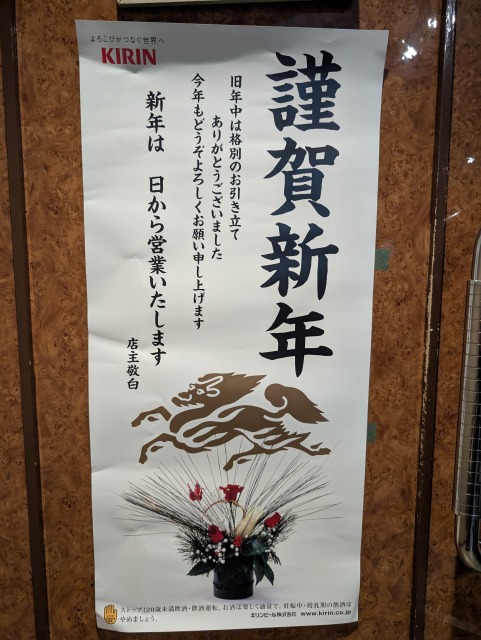 よろこびがつなぐ世界へ
KIRIN
謹賀新年
旧年中は格別のお引き立て
ありがとうございました
今年もどうぞよろしくお願い申し上げます
新年は　日から営業いたします
店主敬白
ストップ!20歳未満飲酒・飲酒運転。お酒は楽しく適量で。妊娠中・授乳期の飲酒は
やめましょう。
キリンビール株式会社 www.kirin.co.jp